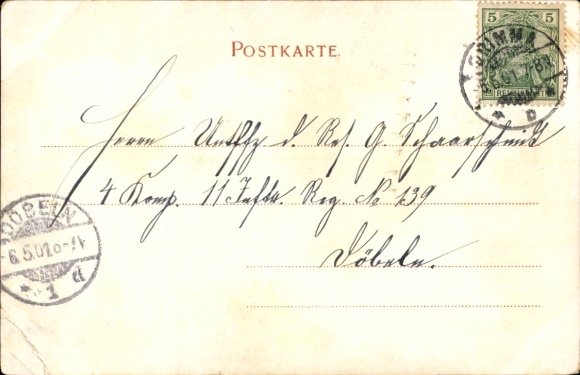 5 5
REICHSPOST
GRIMMA
6.5.01. 7-8V.
* b
POSTKARTE.
Herrn Untffz d. Res. G. Schaarschmidt
4 Komp. 11 Inftr. Reg. No 139
Döbeln.
DÖBELN
6.5.01.8-9V
* 1 d